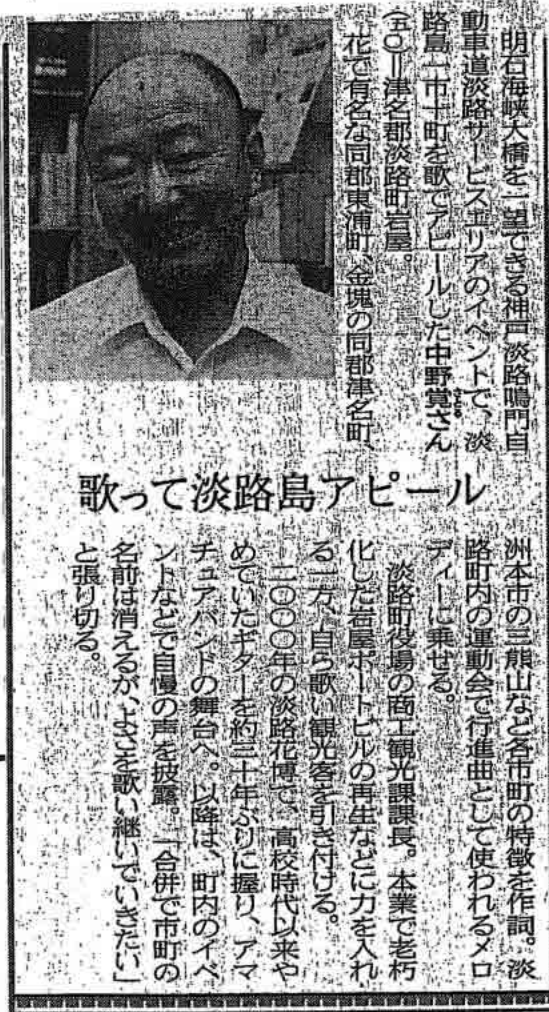 明石海峡大橋を一望できる神戸淡路鳴門自
動車道淡路サービスエリアのイベントで、淡
路島一市十町を歌でアピールした中野覚さん
さとる
(五〇)＝津名郡淡路町岩屋。
花で有名な同郡東浦町、金塊の同郡津名町、
歌って淡路島アピール
洲本市の三熊山など各市町の特徴を作詞。淡
路町内の運動会で行進曲として使われるメロ
ディーに乗せる。
淡路町役場の商工観光課課長。本業で老朽
化した岩屋ポートビルの再生などに力を入れ
る一方、自ら歌い観光客を引き付ける。
二〇〇〇年の淡路花博で、高校時代以来や
めていたギターを約三十年ぶりに握り、アマ
チュアバンドの舞台へ。以降は、町内のイベ
ントなどで自慢の声を披露。「合併で市町の
名前は消えるが、よさを歌い継いでいきたい」
と張り切る。